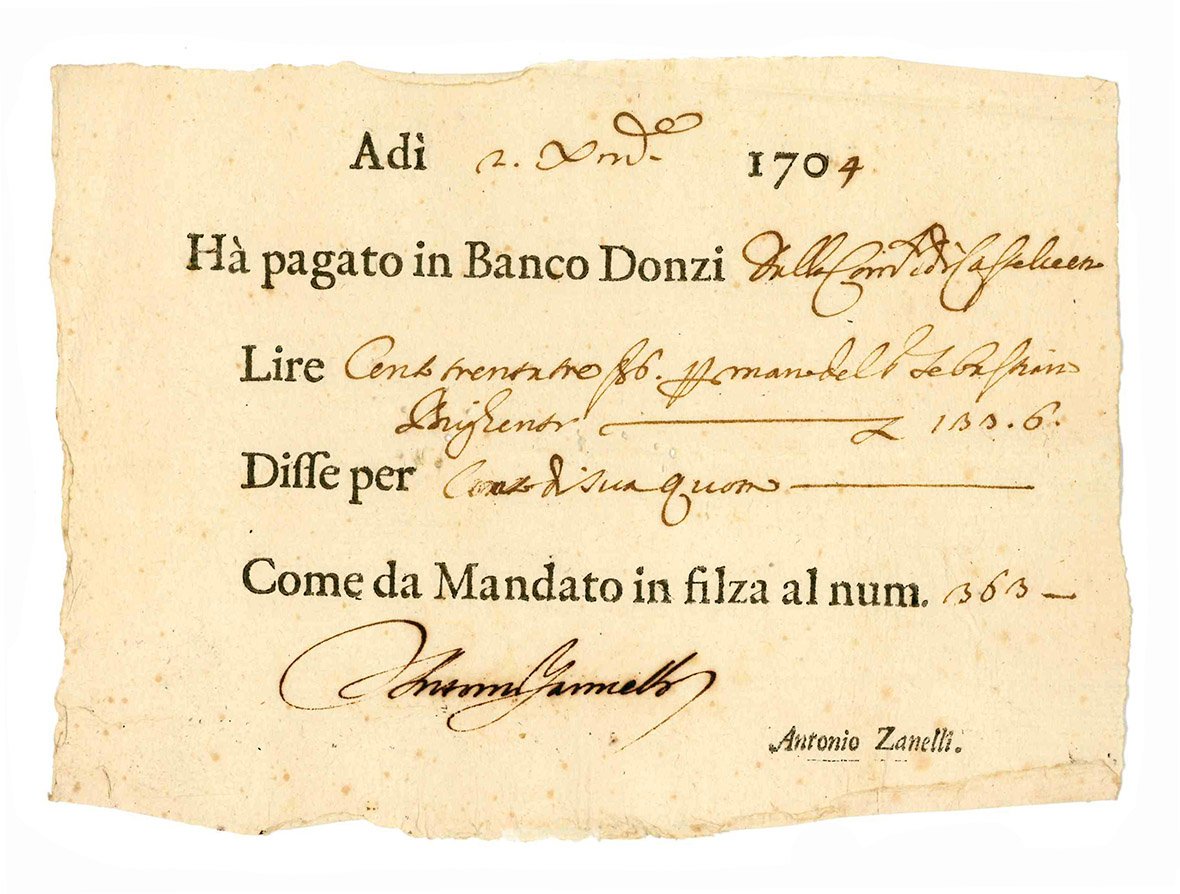 Adì 2. Xmb.e 1704
Hà pagato in Banco Donzi Dalla Com.tà di
Lire Cento trentatre s 6. p mano del Sebastian
Brighenti £ 133.6.
Disse per Conto di sua
Come da Mandato in filza al num. 363
Antonio Zannelli
Antonio Zanelli.